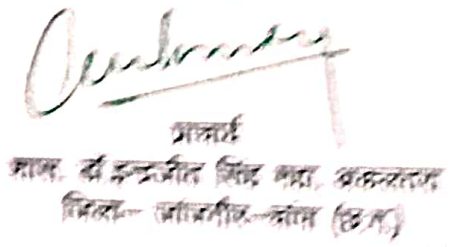 प्राचार्य
शास. डॉ इन्द्रजीत सिंह महा. अकलतरा
जिला- जांजगीर-चांपा (छ.ग.)